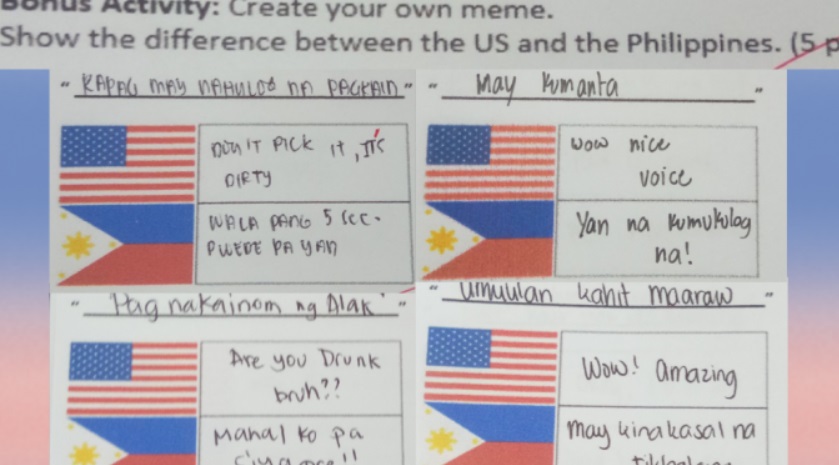 Bonus Activity: Create your own meme.
Show the difference between the US and the Philippines. (5 p
" KAPAG MAY NAHULOG NA PAGKAIN "
DON'T PICK IT, IT'S
DIRTY
WALA PANG 5 SEC.
PWEDE PA YAN
" May Kumanta "
Wow nice
voice
Yan na kumukulog
na!
" Pag nakainom ng Alak "
Are you Drunk
bruh??
Mahal ko pa
" Umuulan kahit maaraw "
Wow! amazing
may kinakasal na